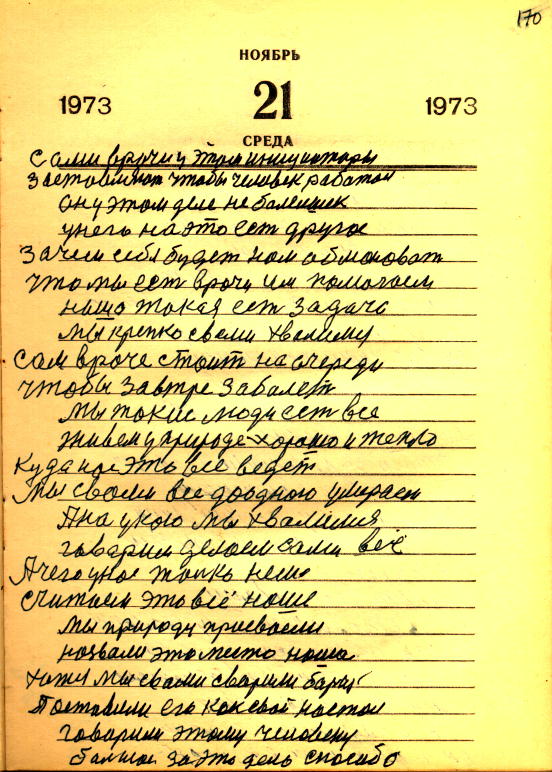 170
НОЯБРЬ
1973 21 1973
СРЕДА
Сами врачи у этом инициаторы
Заставляют чтобы человек работал
он у этом деле не балельщик
унего на это ест другое
Зачем себя будет нам обмоноват
что мы ест врачи им помогаем
нашо такая ест задача
мы крепко свами хвалиму
Сам враче стоит на очереди
чтобы завтре забалет
мы такие люди ест все
живем у природе хорошо и тепло
Куда нас это всё ведет
мы свами все доодного умераем
Ана укою мы хвалимия
говарим делаем сами всё
Ачего унас толко нет
считаем это всё наше
мы природу присвоели
назвали это место наша
хотя мы свами сварили барщ
Поставили его как свой на стол
говарим этому человеку
балшое за это дело спосибо